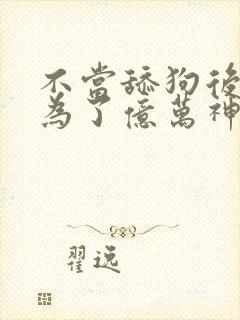 不當舔狗後
為了億萬神
翟逸